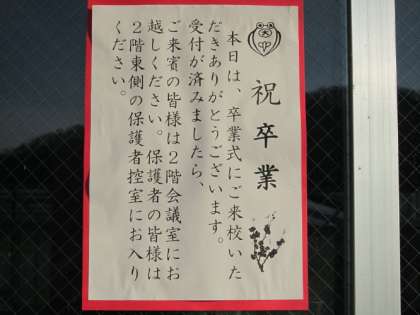 祝卒業
本日は、卒業式にご来校いた
だきありがとうございます。
受付が済みましたら、
ご来賓の皆様は２階会議室にお
越しください。保護者の皆様は
２階東側の保護者控室にお入り
ください。